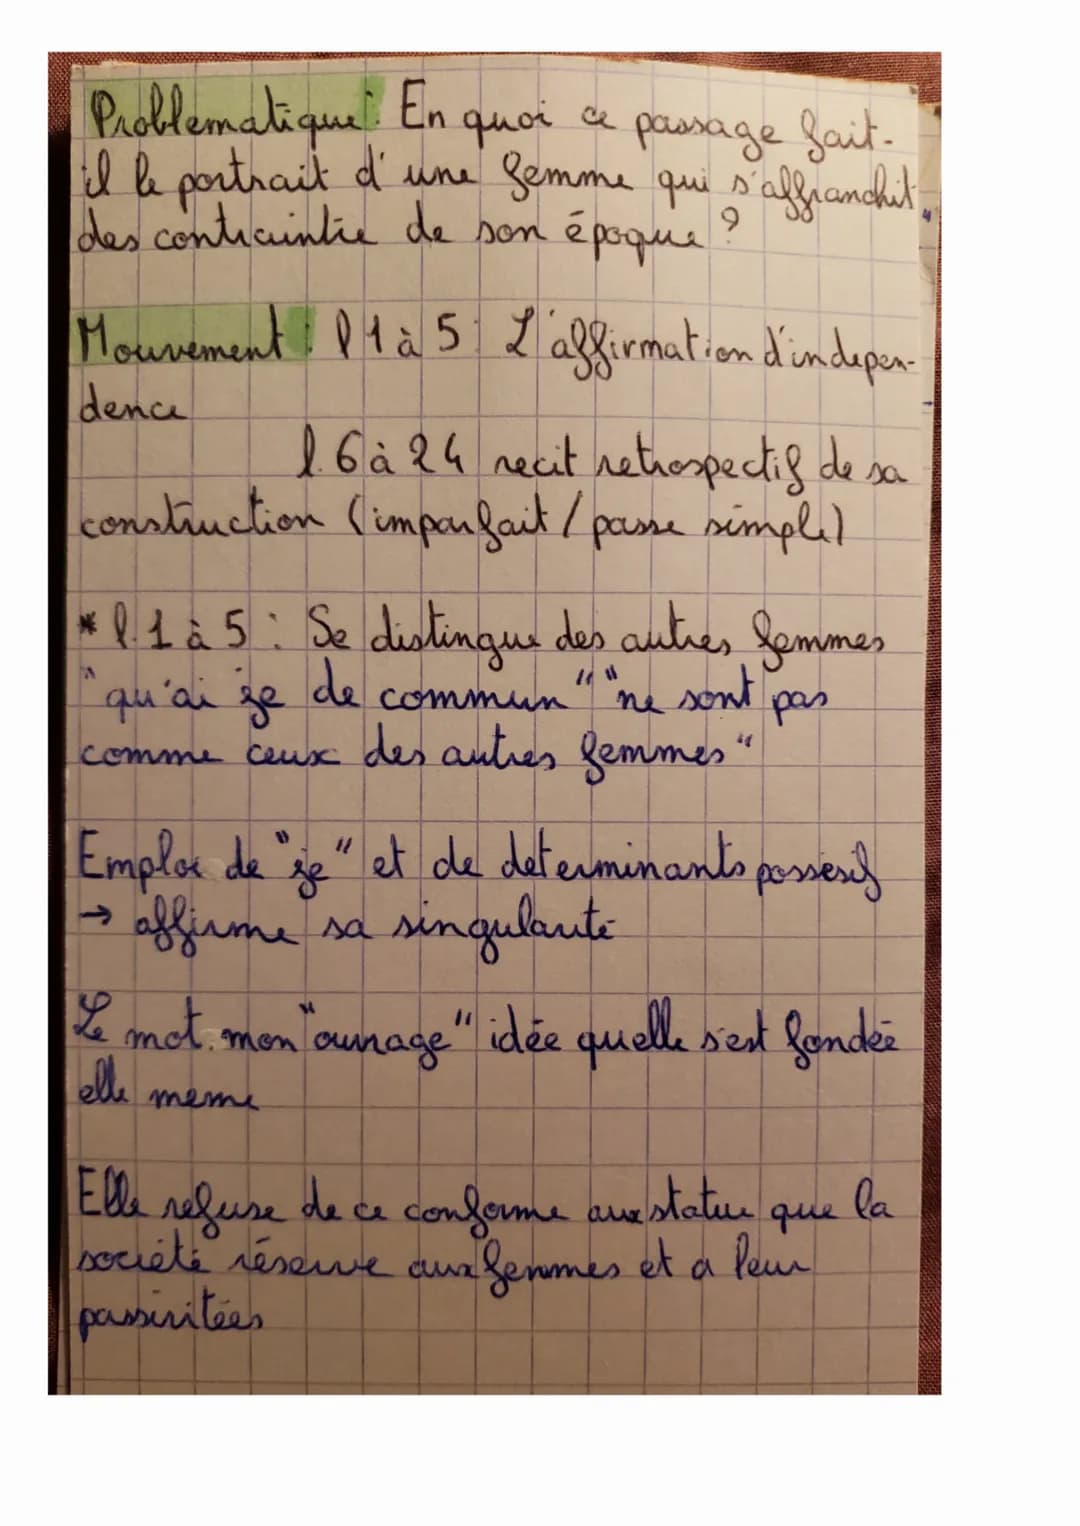 Problematique : En quoi ce passage fait-
il le portrait d'une femme qui s'affranchit
des contrainte de son époque ?
Mouvement : l 1 à 5 : L'affirmation d'indepen-
dence
l. 6 à 24 recit retrospectif de sa
construction (imparfait / passe simple)
* l. 1 à 5 : Se distingue des autres femmes
"qu'ai je de commun" "ne sont pas
comme ceux des autres femmes"
Emploi de "je" et de determinants possesif
→ affirme sa singularité
Le mot mon "ouvrage" idée quelle s'est fondée
elle meme
Elle refuse de ce conforme aux statue que la
société réserve aux femmes et a leur
passivitées